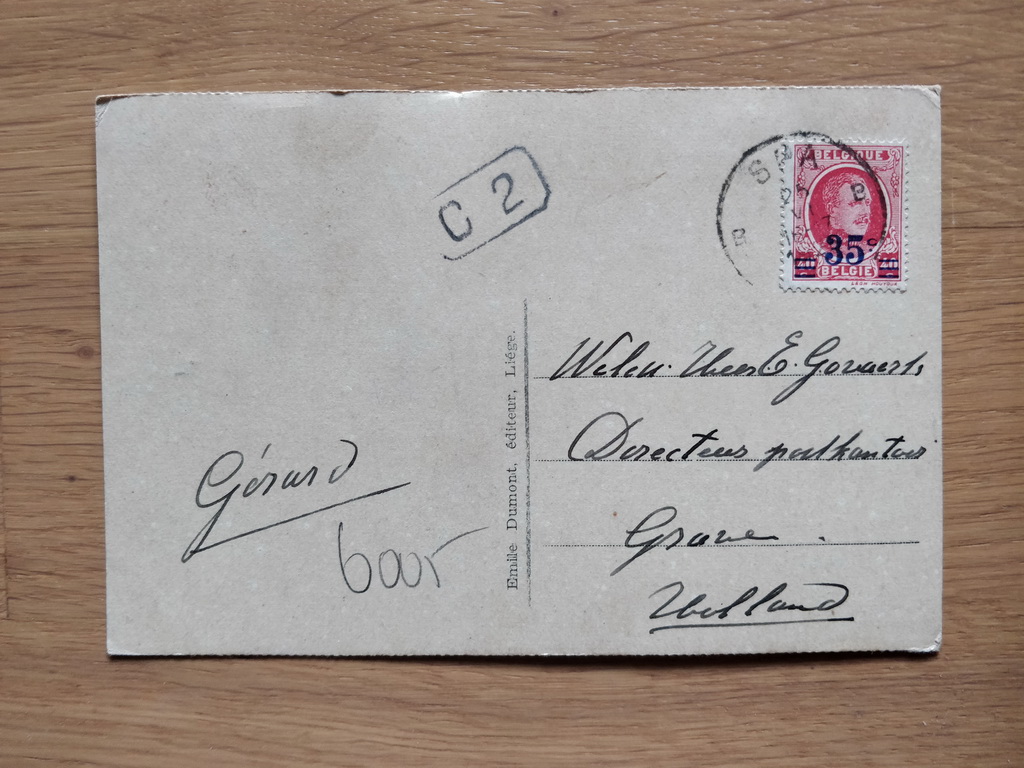 C 2
SPA
B
B
BELGIQUE
35
BELGIE
Emile Dumont, éditeur, Liége.
Heer E. Govaerts
Directeur postkantoor
Grave.
Holland
Gérard